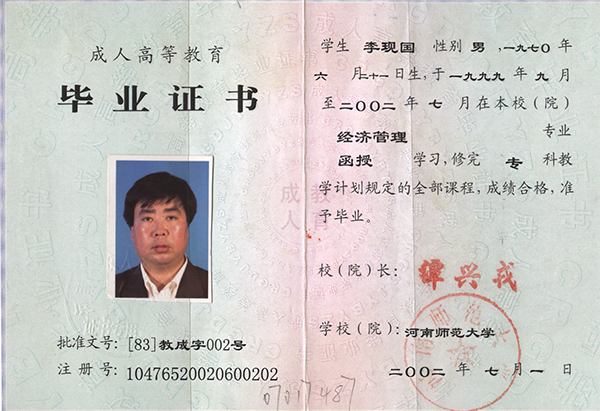 成人高等教育
毕业证书
批准文号：[83]教成字002号
注册号：10476520020600202
学生 李现国 性别 男，一九七〇年
六月二十一日生，于一九九九年九月
至二〇〇二年七月在本校（院）
经济管理 专业
函授 学习，修完 专 科教
学计划规定的全部课程，成绩合格，准
予毕业。
校（院）长：谭兴戎
学校（院）：河南师范大学
二〇〇二年七月一日
07017487